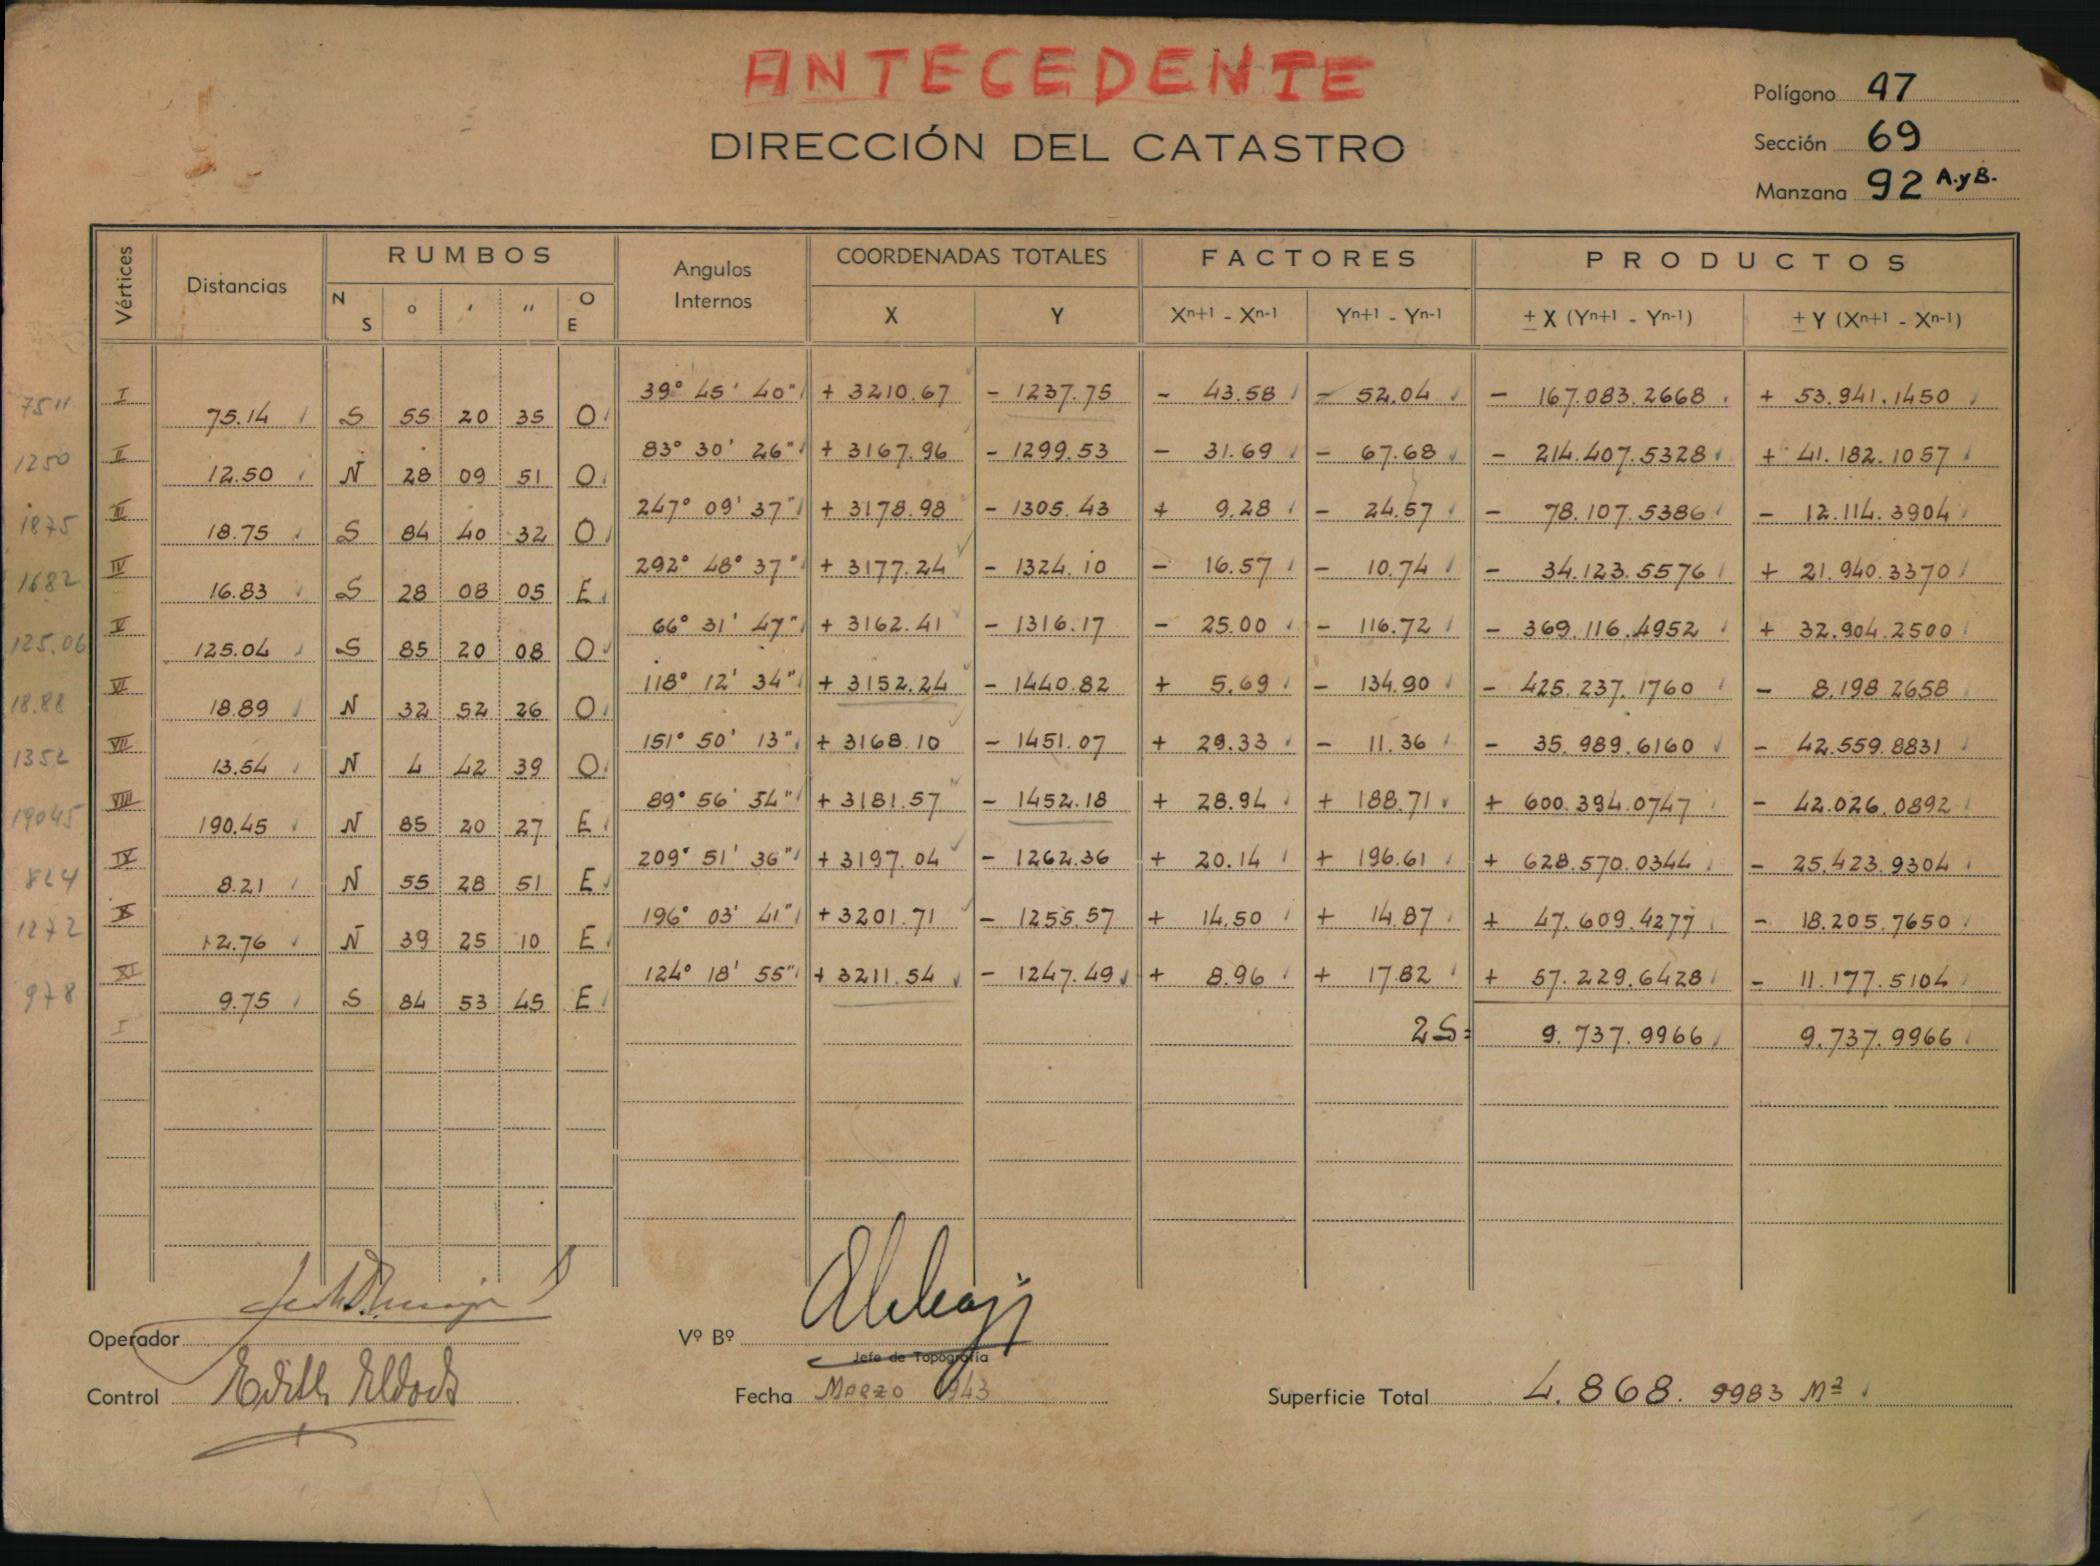 ANTECEDENTE
DIRECCIÓN DEL CATASTRO
Polígono 47
Sección 69
Manzana 92 A.y B.
Vértices Distancias RUMBOS Angulos Internos COORDENADAS TOTALES FACTORES PRODUCTOS
N S ° ' '' O E X Y Xn+1 - Xn-1 Yn+1 - Yn-1 ± X (Yn+1 - Yn-1) ± Y (Xn+1 - Xn-1)
I 39° 45' 40" + 3210.67 - 1237.75 - 43.58 - 52.04 - 167.083.2668 + 53.941.1450
7511 75.14 S 55 20 35 O
II 83° 30' 26" + 3167.96 - 1299.53 - 31.69 - 67.68 - 214.407.5328 + 41.182.1057
1250 12.50 N 28 09 51 O
III 247° 09' 37" + 3178.98 - 1305.43 + 9.28 - 24.57 - 78.107.5386 - 12.114.3904
1875 18.75 S 84 40 32 O
IV 292° 48° 37" + 3177.24 - 1324.10 - 16.57 - 10.74 - 34.123.5576 + 21.940.3370
1682 16.83 S 28 08 05 E
V 66° 31' 47" + 3162.41 - 1316.17 - 25.00 - 116.72 - 369.116.4952 + 32.904.2500
125.06 125.04 S 85 20 08 O
VI 118° 12' 34" + 3152.24 - 1440.82 + 5.69 - 134.90 - 425.237.1760 - 8.198.2658
18.88 18.89 N 32 52 26 O
VII 151° 50' 13" + 3168.10 - 1451.07 + 29.33 - 11.36 - 35.989.6160 - 42.559.8831
1352 13.54 N 4 42 39 O
VIII 89° 56' 54" + 3181.57 - 1452.18 + 28.94 + 188.71 + 600.394.0747 - 42.026.0892
19045 190.45 N 85 20 27 E
IX 209° 51' 36" + 3197.04 - 1262.36 + 20.14 + 196.61 + 628.570.0344 - 25.423.9304
824 8.21 N 55 28 51 E
X 196° 03' 41" + 3201.71 - 1255.57 + 14.50 + 14.87 + 47.609.4277 - 18.205.7650
1272 12.76 N 39 25 10 E
XI 124° 18' 55" + 3211.54 - 1247.49 + 8.96 + 17.82 + 57.229.6428 - 11.177.5104
978 9.75 S 84 53 45 E
I 2S= 9.737.9966 9.737.9966
Operador
Vº Bº
Jefe de Topografía
Control Edith
Fecha Marzo 1943
Superficie Total 4.868.9983 M²